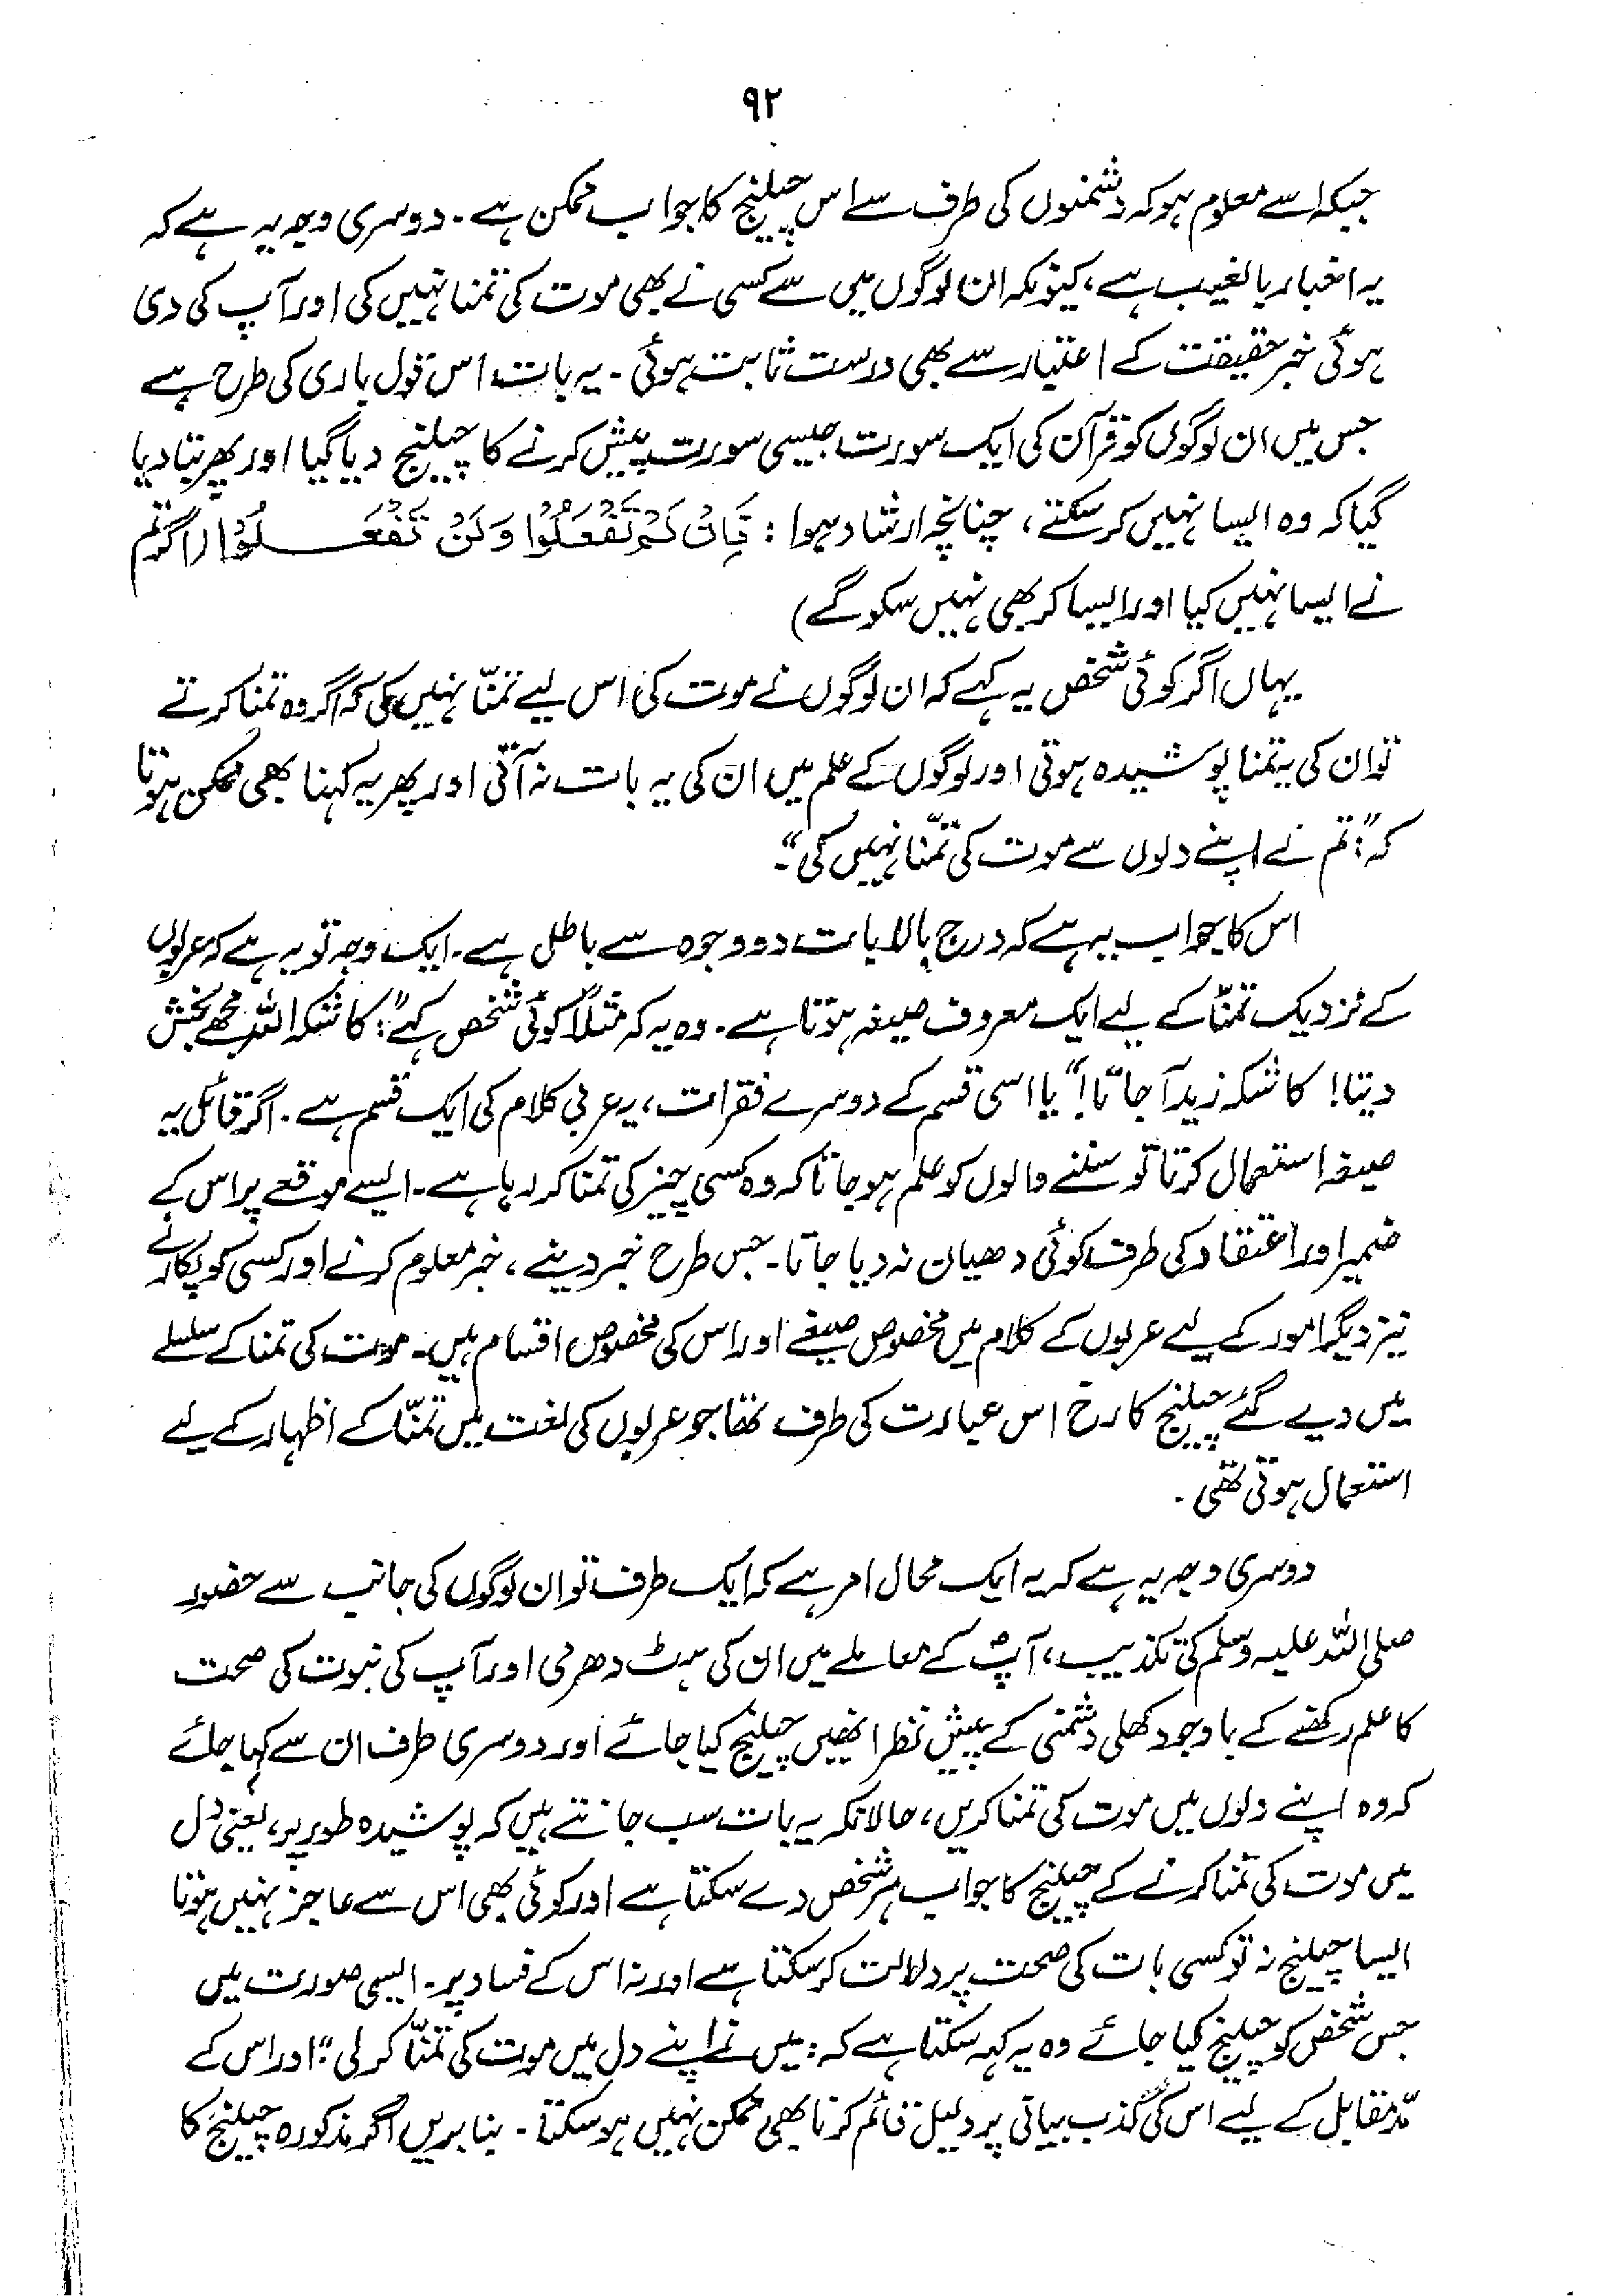 ۹۲
جبکہ اسے معلوم ہو کہ دشمنوں کی طرف سے اس چیلنج کا جواب ممکن ہے۔ دوسری وجہ یہ ہے کہ
یہ اخبار بالغیب ہے، کیونکہ ان لوگوں میں سے کسی نے بھی موت کی تمنا نہیں کی اور آپ کی دی
ہوئی خبر حقیقت کے اعتبار سے بھی درست ثابت ہوئی۔ یہ بات اس قول باری کی طرح ہے
جس میں ان لوگوں کو قرآن کی ایک سورت جیسی سورت پیش کرنے کا چیلنج دیا گیا اور پھر بتا دیا
گیا کہ وہ ایسا نہیں کر سکتے، چنانچہ ارشاد ہوا : فَاِنْ لَمْ تَفْعَلُوْا وَلَنْ تَفْعَلُوْا (اگر تم
نے ایسا نہیں کیا اور ایسا کر بھی نہیں سکو گے)
یہاں اگر کوئی شخص یہ کہے کہ ان لوگوں نے موت کی اس لیے تمنّا نہیں کی کہ اگر وہ تمنا کرتے
تو ان کی یہ تمنا پوشیدہ ہوتی اور لوگوں کے علم میں ان کی یہ بات نہ آتی اور پھر یہ کہنا بھی ممکن ہوتا
کہ :" تم نے اپنے دلوں سے موت کی تمنّا نہیں کی"۔
اس کا جواب یہ ہے کہ درج بالا بات دو وجوہ سے باطل ہے۔ ایک وجہ تو یہ ہے کہ عربوں
کے نزدیک تمنّا کے لیے ایک معروف صیغہ ہوتا ہے۔ وہ یہ کہ مثلاً کوئی شخص کہے :" کاشکہ اللہ مجھے بخش
دیتا! کاشکہ زید آ جاتا!" یا اسی قسم کے دوسرے فقرات، یہ عربی کلام کی ایک قسم ہے۔ اگر قائل یہ
صیغہ استعمال کرتا تو سننے والوں کو علم ہو جاتا کہ وہ کسی چیز کی تمنا کر رہا ہے۔ ایسے موقعے پر اس کے
ضمیر اور اعتقاد کی طرف کوئی دھیان نہ دیا جاتا۔ جس طرح خبر دینے، خبر معلوم کرنے اور کسی کو پکارنے
نیز دیگر امور کے لیے عربوں کے کلام میں مخصوص صیغے اور اس کی مخصوص اقسام ہیں۔ موت کی تمنا کے سلسلے
میں دیے گئے چیلنج کا رخ اس عبارت کی طرف تھا جو عربوں کی لغت میں تمنّا کے اظہار کے لیے
استعمال ہوتی تھی۔
دوسری وجہ یہ ہے کہ یہ ایک محال امر ہے کہ ایک طرف تو ان لوگوں کی جانب سے حضور
صلی اللہ علیہ وسلم کی تکذیب، آپؐ کے معاملے میں ان کی ہٹ دھرمی اور آپ کی نبوت کی صحت
کا علم رکھنے کے باوجود کھلی دشمنی کے پیش نظر انھیں چیلنج کیا جائے اور دوسری طرف ان سے کہا جائے
کہ وہ اپنے دلوں میں موت کی تمنا کریں، حالانکہ یہ بات سب جانتے ہیں کہ پوشیدہ طور پر، یعنی دل
میں موت کی تمنا کرنے کے چیلنج کا جواب ہر شخص دے سکتا ہے اور کوئی بھی اس سے عاجز نہیں ہوتا
ایسا چیلنج نہ تو کسی بات کی صحت پر دلالت کر سکتا ہے اور نہ اس کے فساد پر۔ ایسی صورت میں
جس شخص کو چیلنج کیا جائے وہ یہ کہہ سکتا ہے کہ : میں نے اپنے دل میں موت کی تمنّا کر لی" اور اس کے
مدّ مقابل کے لیے اس کی کذب بیانی پر دلیل قائم کرنا بھی ممکن نہیں ہو سکتا۔ بنا بریں اگر مذکورہ چیلنج کا